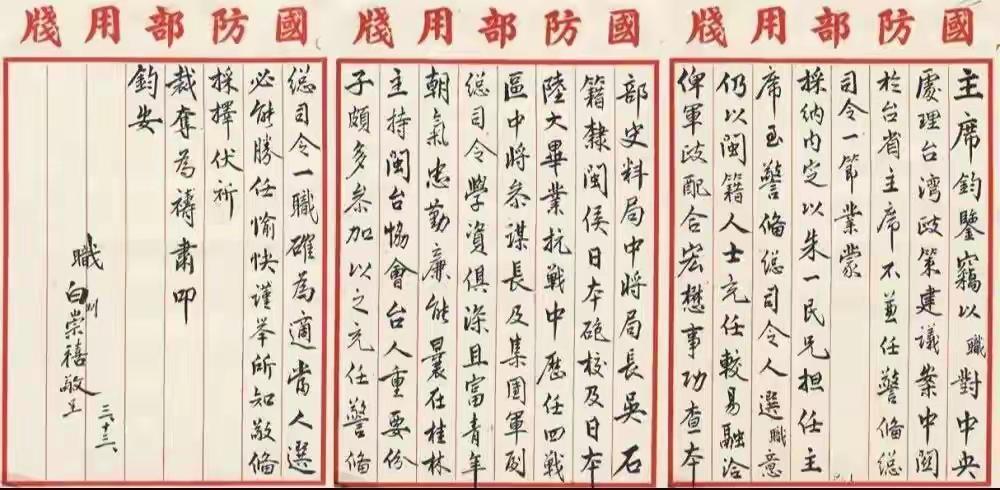 國防部用牋
主席鈞鑒竊以職對中央
處理台湾政策建議案中関
於台省主席不兼任警備総
司令一節業蒙
採納內定以朱一民兄担任主
席至警备総司令人選職意
仍以閩籍人士充任較易融洽
俾軍政配合宏懋事功查本
國防部用牋
部史料局中將局長吳石
籍隸閩侯日本砲校及日本
陸大畢業抗戰中歷任四戰
區中將参謀長及集團軍副
総司令學資俱深且富青年
朝氣忠勤廉能曩在桂林
主持閩台協會台人重要份
子頗多参加以之充任警備
國防部用牋
総司令一職確為適當人選
必能勝任愉快謹举所知敬備
採擇伏祈
裁奪為禱肅叩
鈞安
職白崇禧敬呈
三十三、